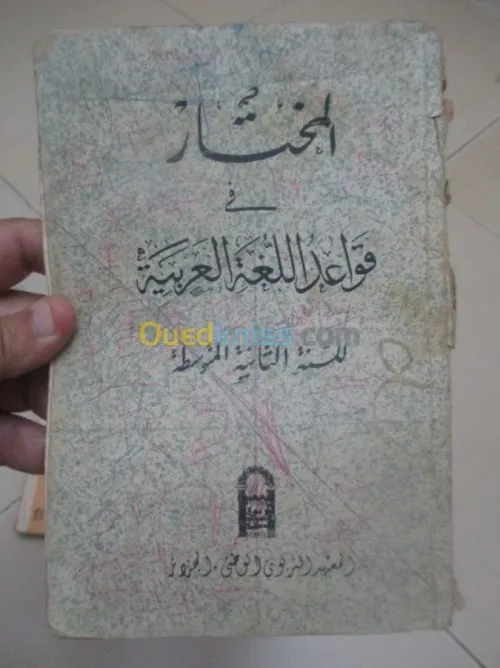 المختار
في
قواعد اللغة العربية
Ouedkniss.com
للسنة الثانية المتوسطة
المعهد التربوي الوطني - الجزائر